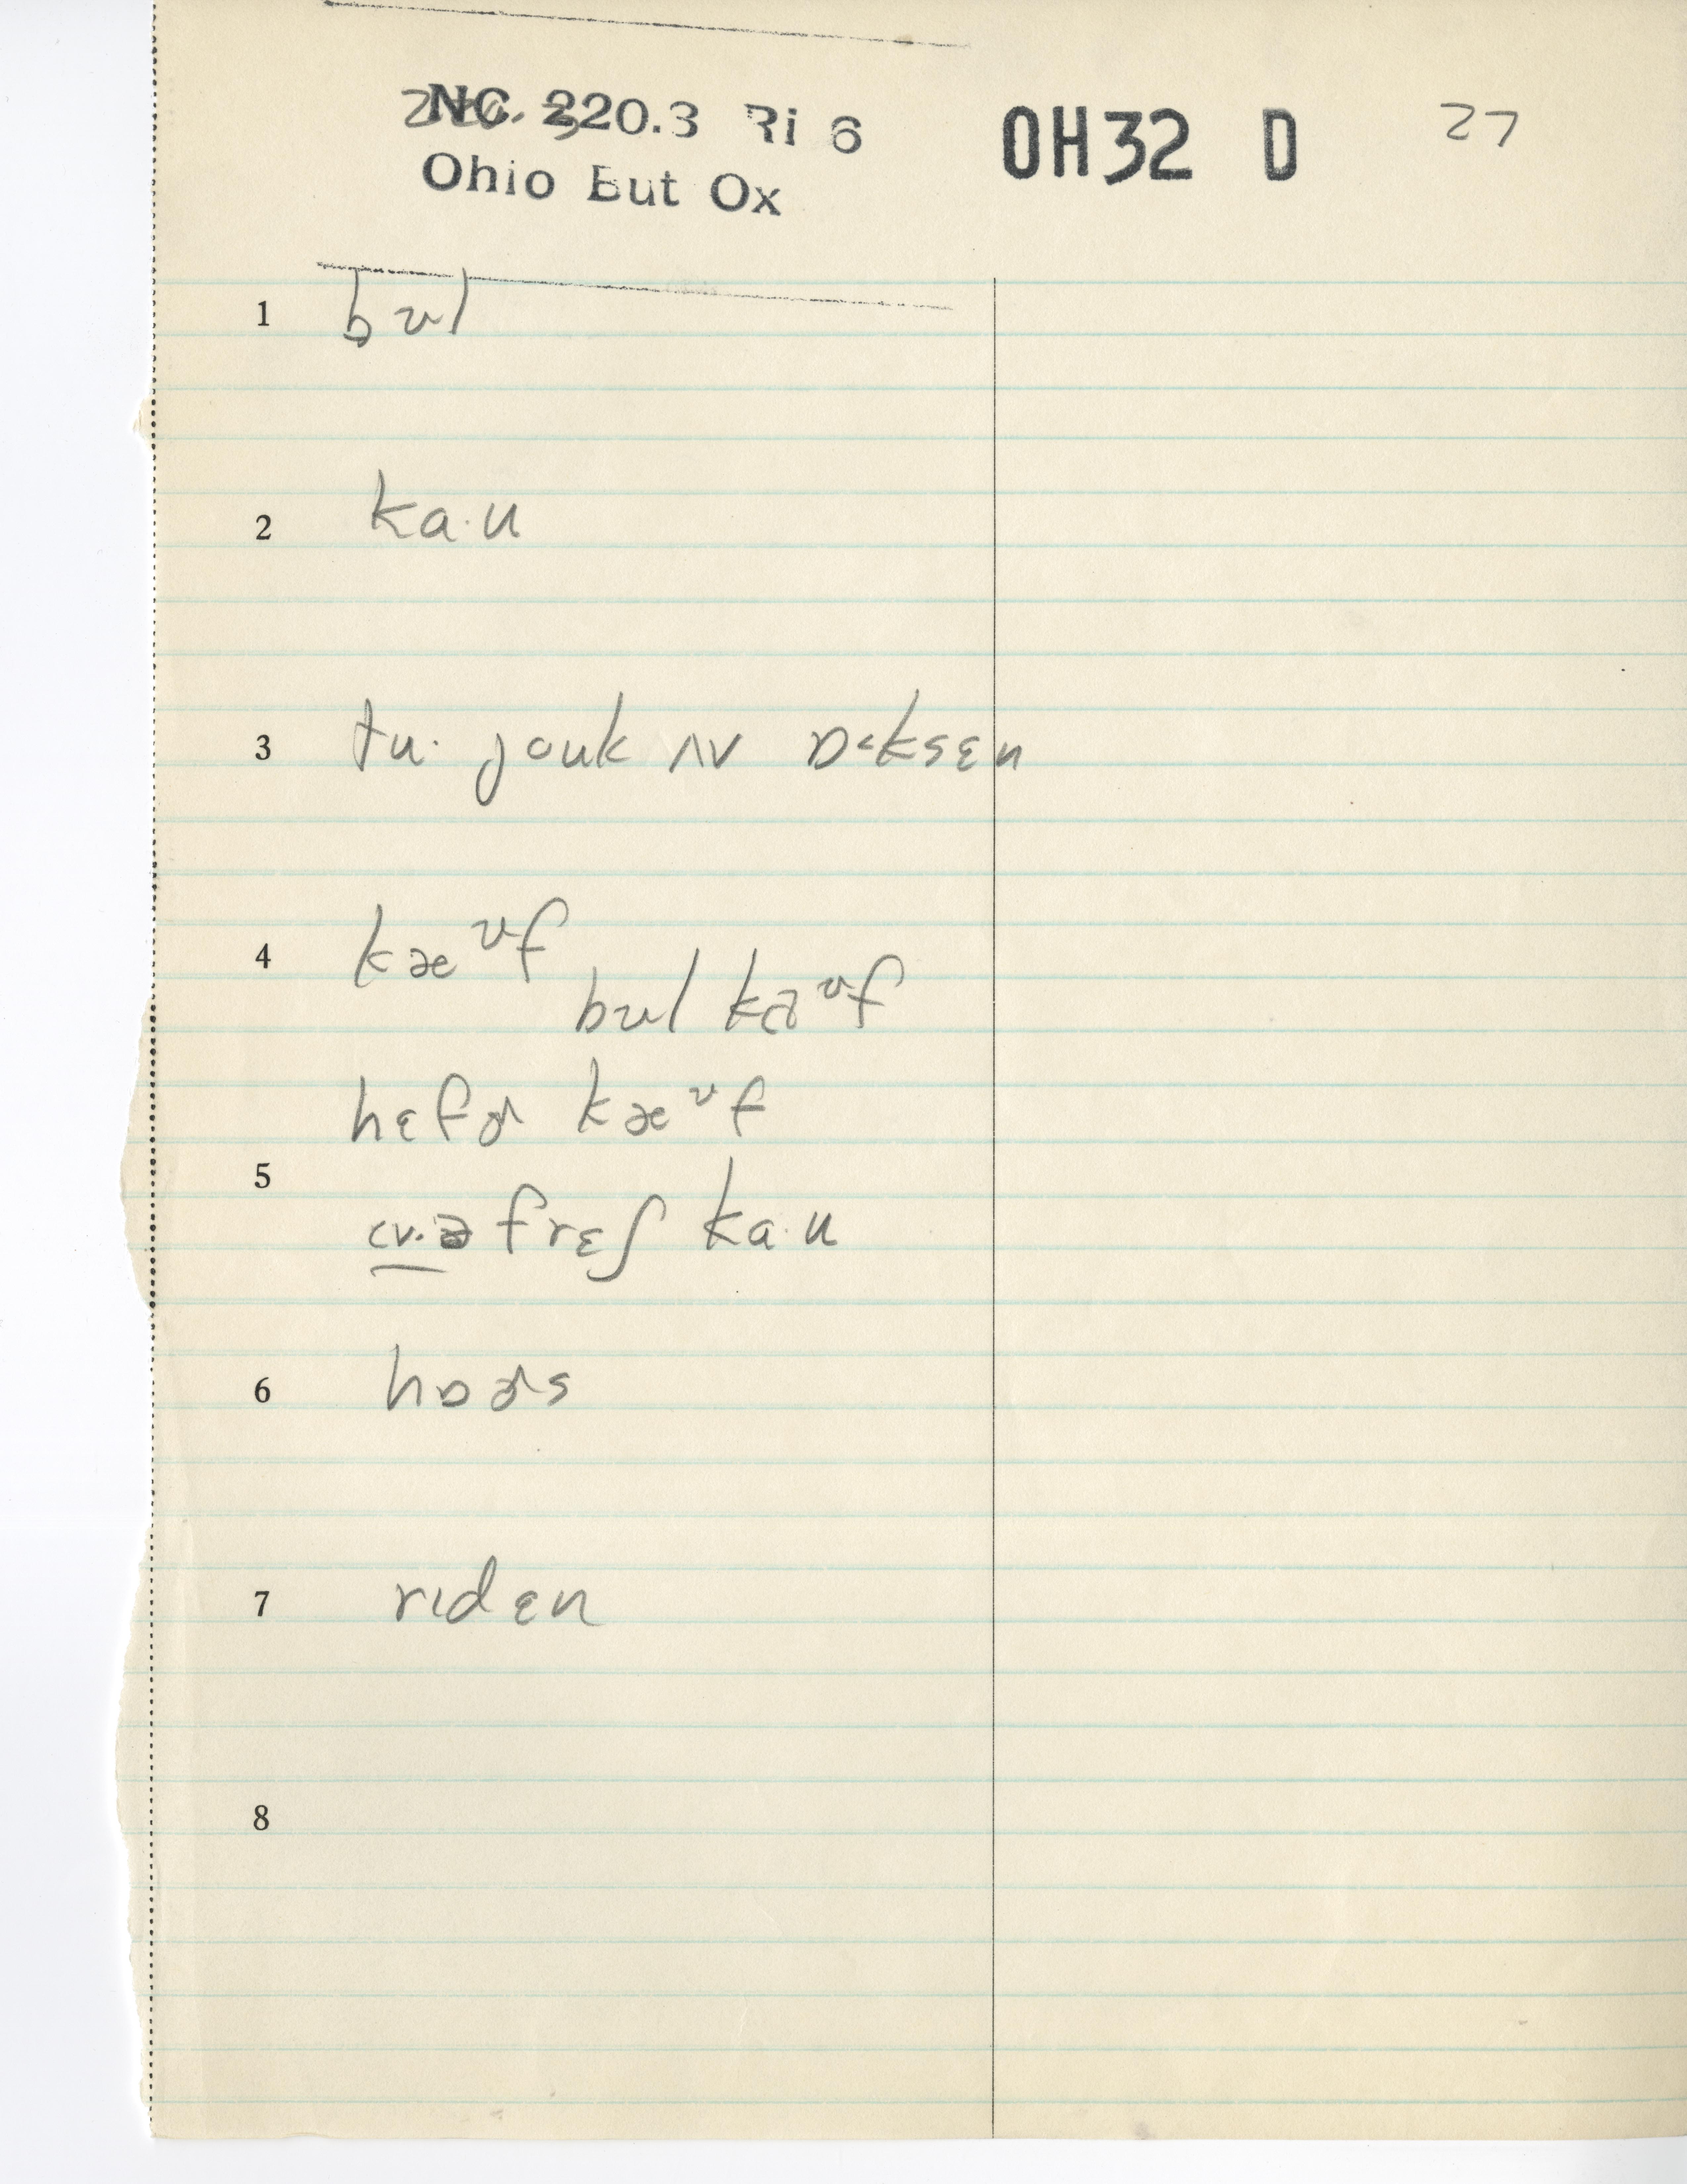 NC. 220.3 Ri 6 OH32 D 27
Ohio But Ox
1 bʊl
2 ka·u
3 tu· jouk ʌv ɒ˂ksɛn
4 kæᶷf
bʊl kæᶷf
hɛfɚ kæᶷf
5
frɛʃ ka·u
6 hɒɚs
7 rɪdɛn
8